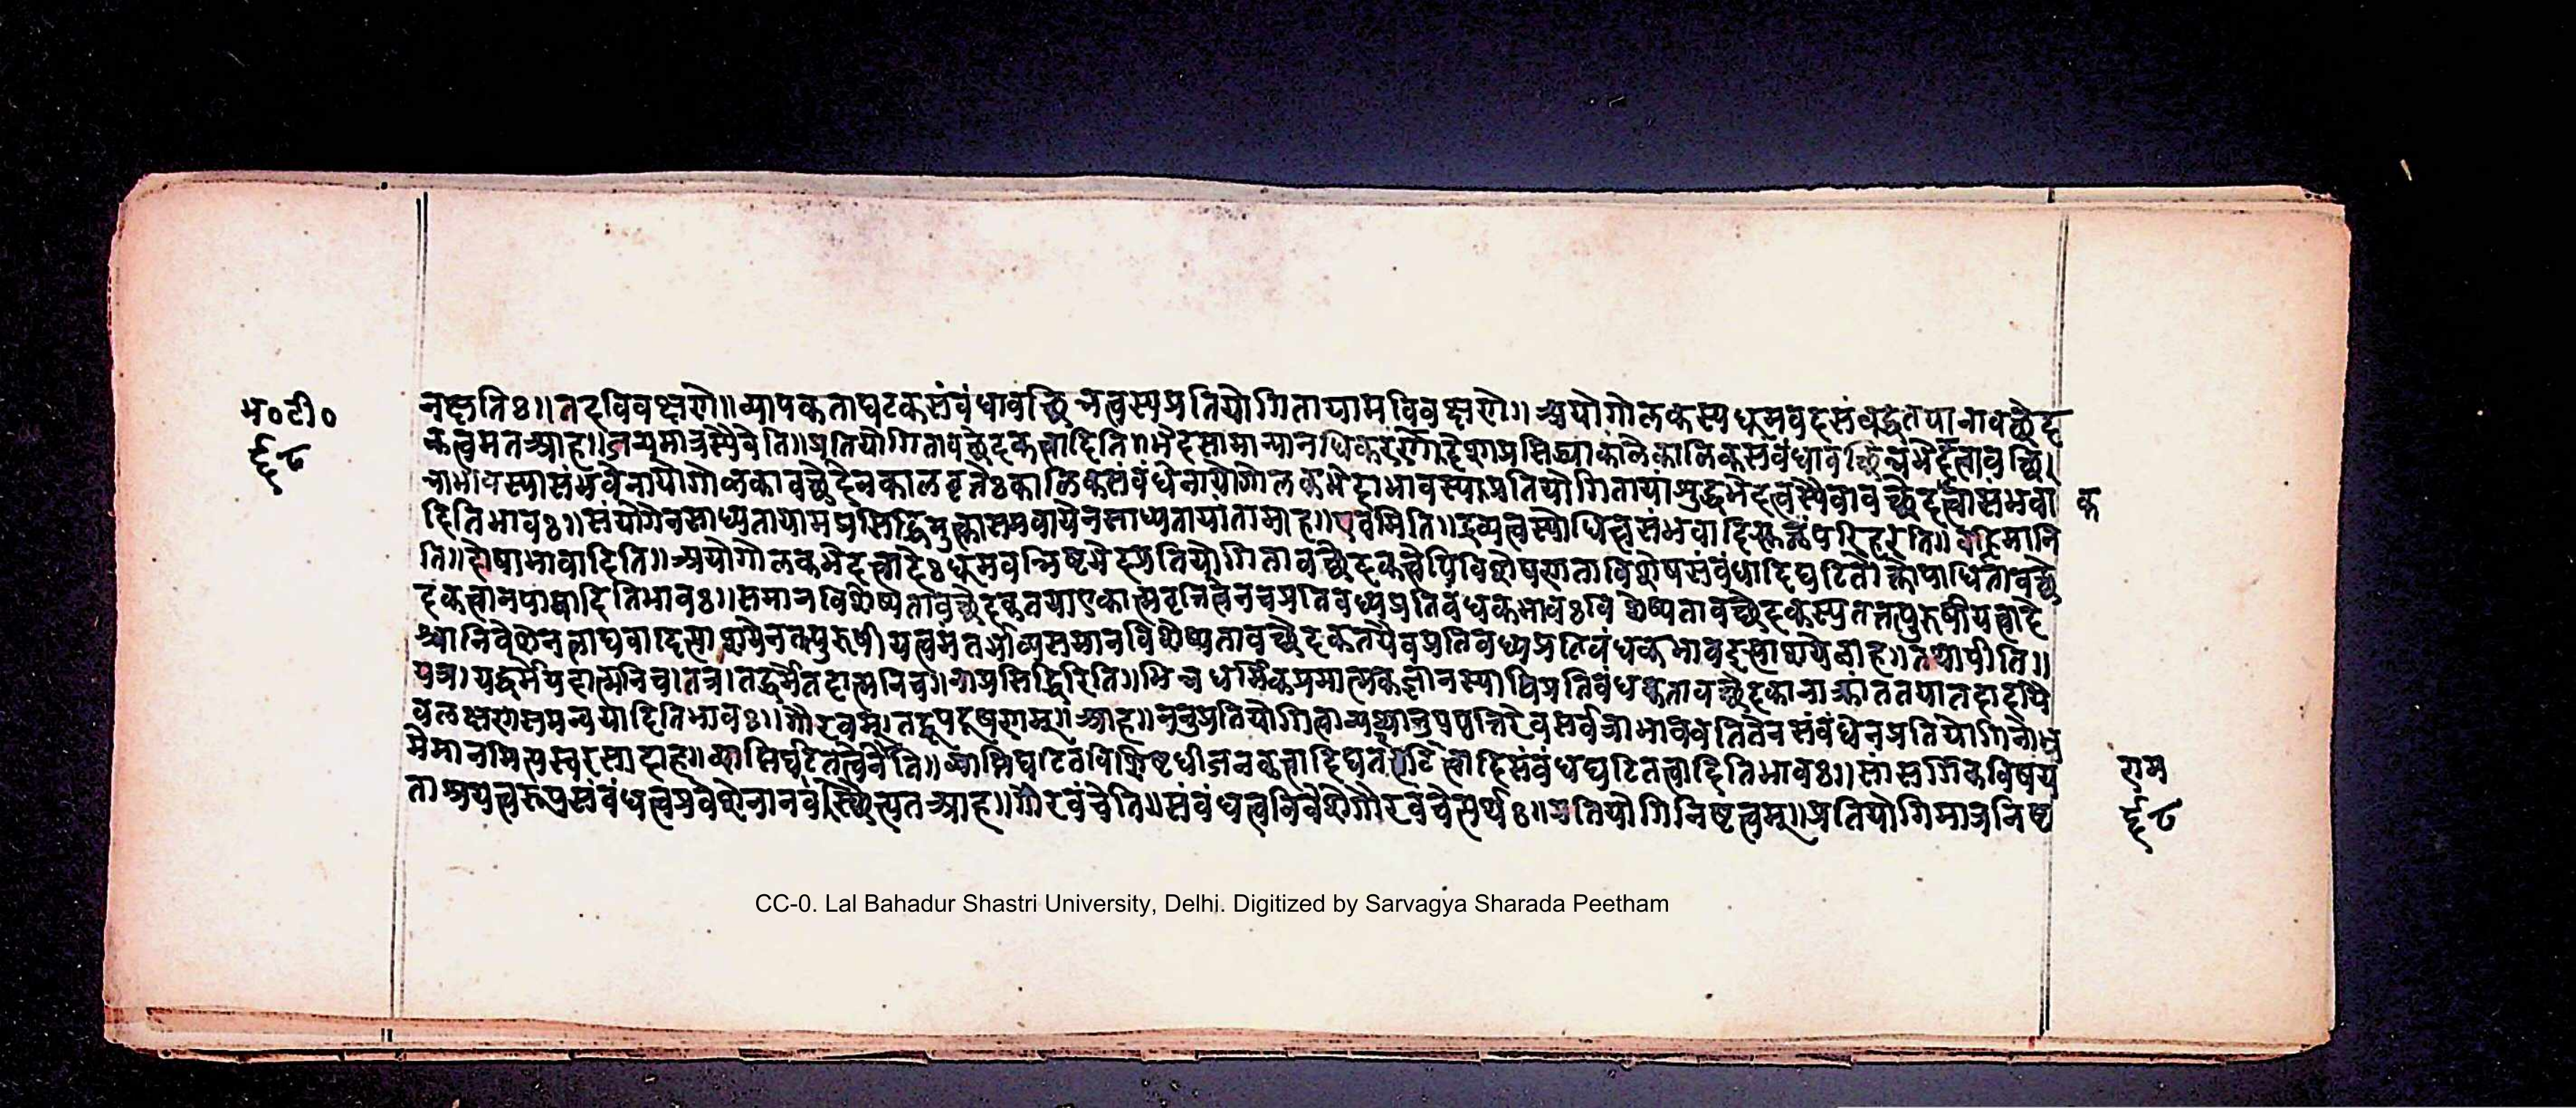 भ०टी०
६८
नक्षतिः॥तदविवक्षणे॥व्यापकताघटकसंबंधावच्छिन्नत्वस्यप्रतियोगितायामविवक्षणे॥अयोगोलकस्यधूमवदसंबद्धतयानावच्छेद
कत्वमतआह॥द्रव्यमात्रस्यैवेति॥प्रतियोगितावच्छेदकत्वादिति॥भेदसामान्यानधिकरणदेशाप्रसिद्ध्याकालेकालिकसंबंधावच्छिन्नभेदत्वावच्छि
न्नाभावस्यासंभवेनायोगोलकावच्छेदेनकालवृत्तेःकालिकसंबंधेनायोगोलकभेदाभावस्यप्रतियोगितायांशुद्धभेदत्वस्यैवावच्छेदकत्वासंभवा
क
दितिभावः॥संयोगेनसाध्यतायामप्रसिद्धिमुक्त्वासमवायेनसाध्यतायांतामाह॥एवमिति॥द्रव्यत्वस्योपाधित्वसंभवादित्युक्तंपरिहरति॥वह्निमानि
ति॥दोषाभावादिति॥अयोगोलकभेदत्वादेःधूमवन्निष्ठभेदप्रतियोगितावच्छेदकत्वेपिविशेषणताविशेषसंबंधादिघटितोक्तोपाधितावच्छे
दकत्वानपायादितिभावः॥समानविशेष्यतावच्छेदकतयाएकात्मवृत्तित्वेनचप्रतिबध्यप्रतिबंधकभावःविशेष्यतावच्छेदकस्यतत्तत्पुरुषीयत्वादे
श्चानिवेशेनलाघवादित्याशयेनतत्पुरुषीयत्वमंतर्भाव्यसमानविशेष्यतावच्छेदकतयैवप्रतिबध्यप्रतिबंधकभावइत्याशयेनाह॥तथापीति॥
यत्र।यद्धर्मेयदात्मनिच।तत्र।तद्धर्मेतदात्मनिच॥नाप्रसिद्धिरिति॥भिन्नधर्मिकप्रमात्मकज्ञानस्यापिप्रतिबंधकतावच्छेदकानाक्रांततयातदादायै
वलक्षणसमन्वयादितिभावः॥गौरवम्।तद्रूपदूषणम्॥आह॥ननुप्रतियोगित्वान्यथानुपपत्तिरेवसर्वत्राभावेवर्ततितेनसंबंधेनप्रतियोगिनोभ्र
मेमानमित्यस्वरसादाह॥व्याप्तिघटितत्वेनेति॥व्याप्तिघटितविशिष्टधीजनकत्वादिघटितत्वादिसंबंधघटितत्वादितिभावः॥सांसर्गिकविषय
ताश्रयत्वरूपसंबंधत्वप्रवेशेनानवस्थित्यतआह॥गौरवंचेति॥संबंधत्वनिवेशेगौरवंचेत्यर्थः॥प्रतियोगिनिष्ठत्वम्॥प्रतियोगिमात्रनिष्ठ
राम
६८
CC-0. Lal Bahadur Shastri University, Delhi. Digitized by Sarvagya Sharada Peetham